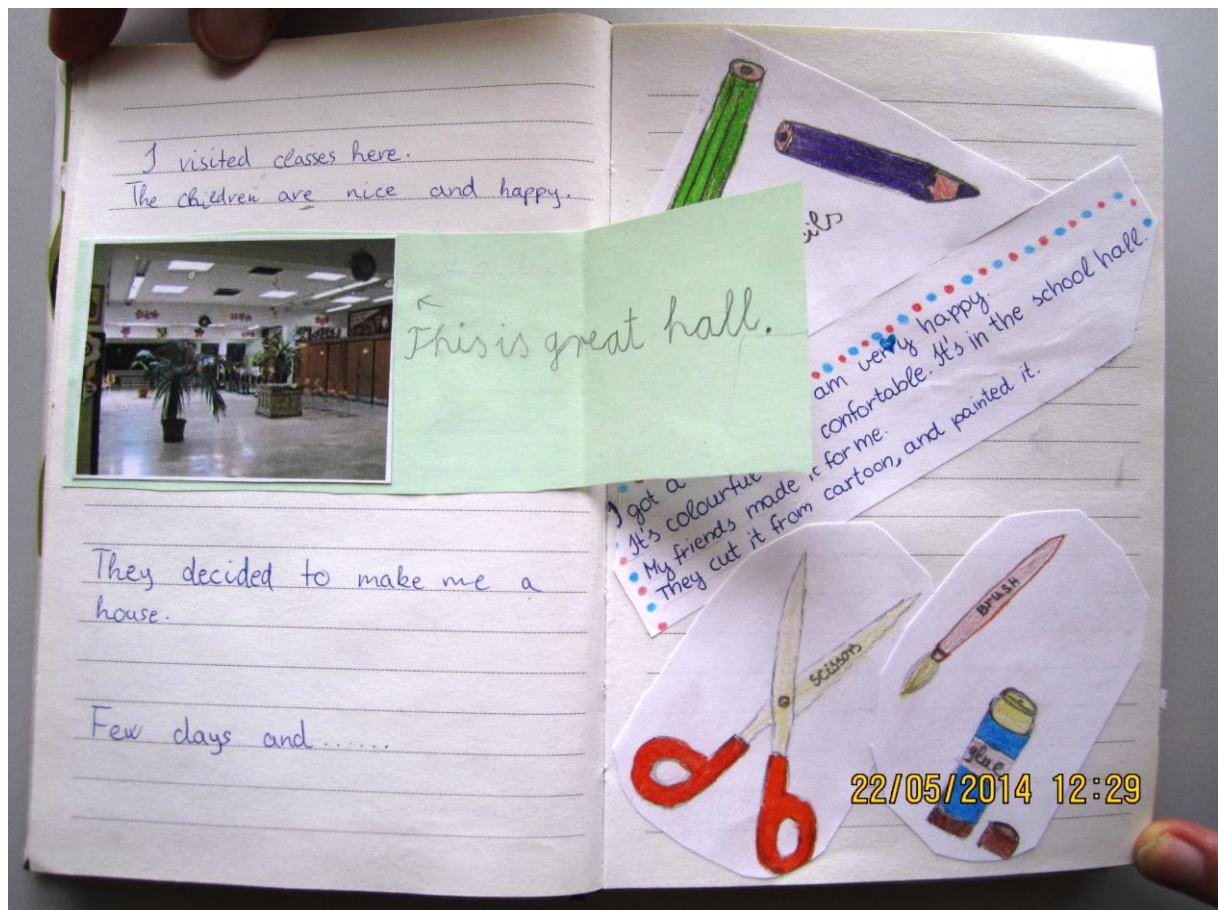 I visited classes here.
The children are nice and happy.
This is great hall.
They decided to make me a
house.
Few days and.......
am verry happy.
I got a
confortable. It's in the school hall.
It's colourful
My friends made it for me.
They cut it from cartoon, and painted it.
scissors
BRUSH
glue
22/05/2014 12:29